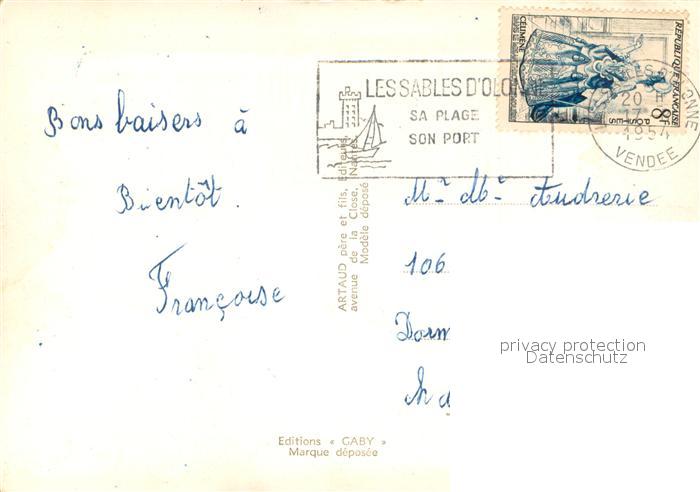 Bons baisers à
Bientôt.
Françoise
LES SABLES D'OLONNE
SA PLAGE
SON PORT
REPUBLIQUE FRANÇAISE
CÉLIMÈNE
8F
POSTES
20 H
1954
VENDEE
Mr Me Audrerie
106
Dorm
ARTAUD père et fils, Editeurs,
avenue de la Close, Nantes
Modèle déposé
privacy protection
Datenschutz
Editions « GABY »
Marque déposée